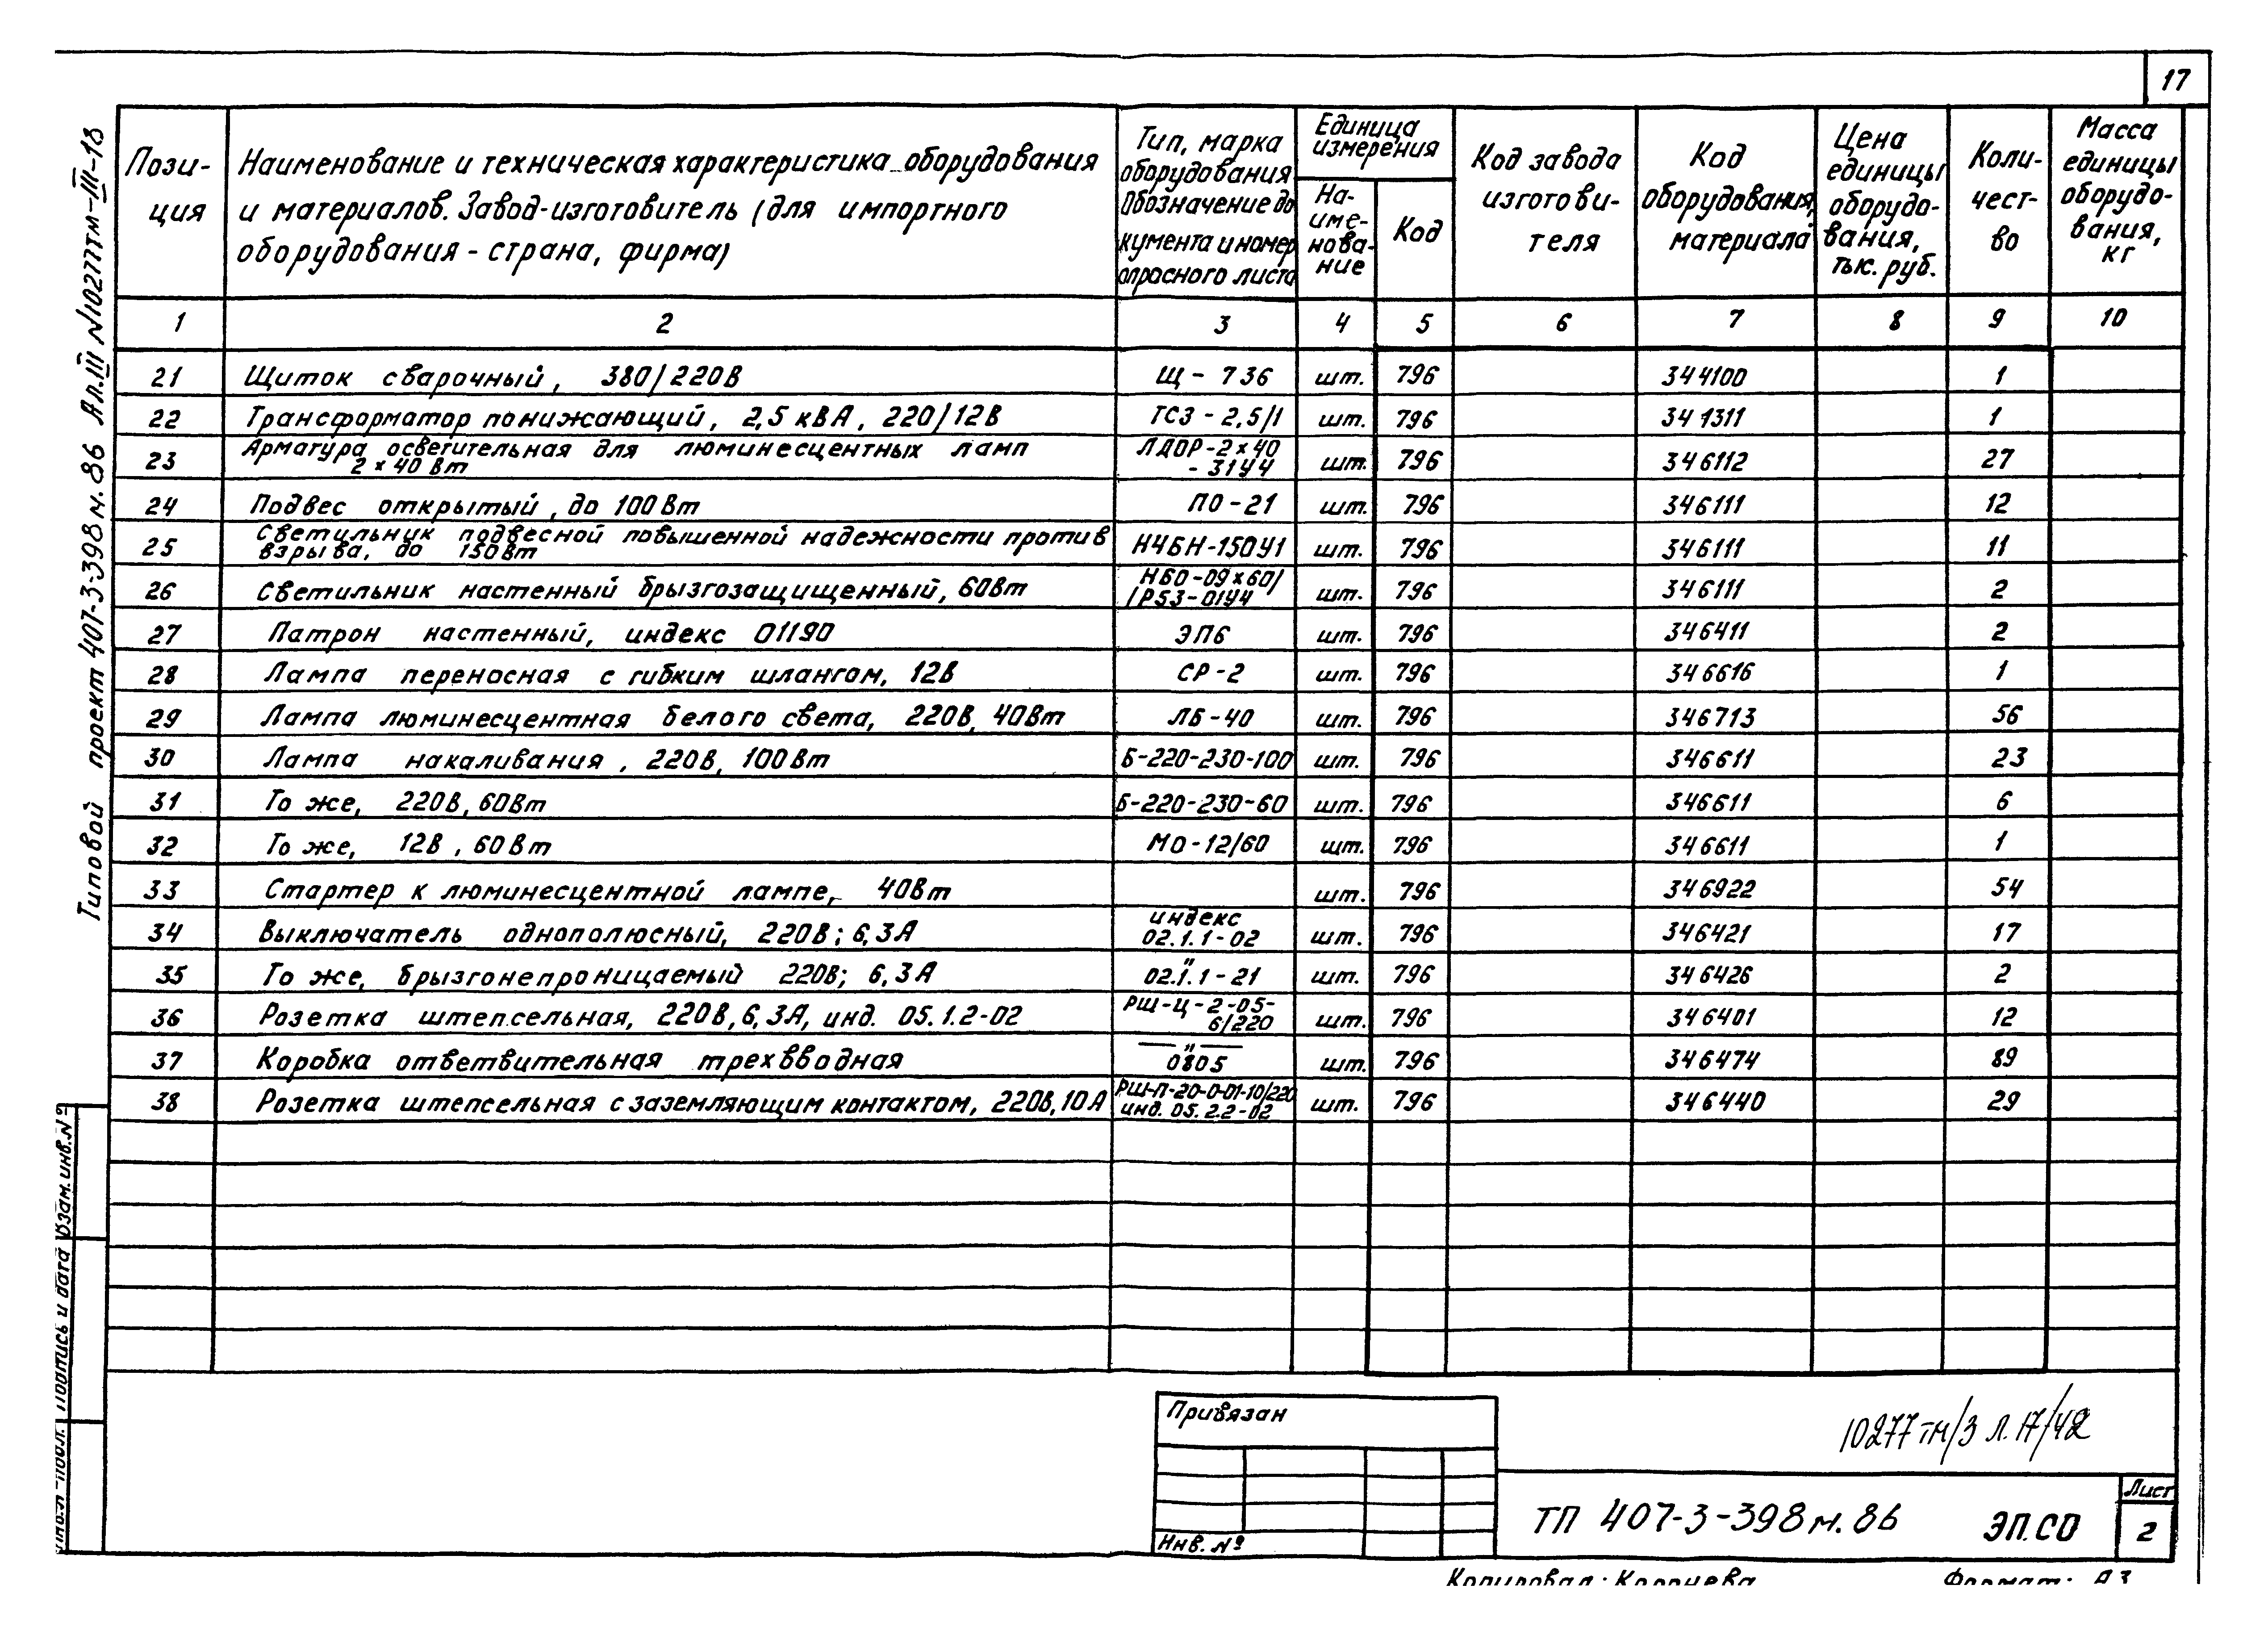 17
Типовой проект 407-3-398м.86 Ал.III №10277тм-III-18
Пози-
ция
Наименование и техническая характеристика оборудования
и материалов. Завод-изготовитель (для импортного
оборудования - страна, фирма)
Тип, марка
оборудования
Обозначение до
кумента и номер
опросного листа
Единица
измерения
На-
име-
нова-
ние
Код
Код завода
изготови-
теля
Код
оборудования,
материала
Цена
единицы
оборудо-
вания,
тыс. руб.
Коли-
чест-
во
Масса
единицы
оборудо-
вания,
кг
1 2 3 4 5 6 7 8 9 10
21 Щиток сварочный, 380/220В Щ-736 шт. 796 344100 1
22 Трансформатор понижающий, 2,5 кВА, 220/12В ТСЗ-2,5/1 шт. 796 341311 1
23 Арматура осветительная для люминесцентных ламп ЛДОР-2×40 шт. 796 346112 27
2×40 Вт -31У4
24 Подвес открытый, до 100Вт ПО-21 шт. 796 346111 12
25 Светильник подвесной повышенной надежности против Н4БН-150У1 шт. 796 346111 11
взрыва, до 150Вт
26 Светильник настенный брызгозащищенный, 60Вт НБО-09×60/ шт. 796 346111 2
/Р53-01У4
27 Патрон настенный, индекс 01190 ЭП6 шт. 796 346411 2
28 Лампа переносная с гибким шлангом, 12В СР-2 шт. 796 346616 1
29 Лампа люминесцентная белого света, 220В, 40Вт ЛБ-40 шт. 796 346713 56
30 Лампа накаливания, 220В, 100Вт Б-220-230-100 шт. 796 346611 23
31 То же, 220В, 60Вт Б-220-230-60 шт. 796 346611 6
32 То же, 12В, 60Вт МО-12/60 шт. 796 346611 1
33 Стартер к люминесцентной лампе, 40Вт шт. 796 346922 54
34 Выключатель однополюсный, 220В; 6,3А индекс шт. 796 346421 17
02.1.1-02
35 То же, брызгонепроницаемый 220В; 6,3А " шт. 796 346426 2
02.1.1-21
36 Розетка штепсельная, 220В, 6,3А, инд. 05.1.2-02 РШ-Ц-2-05- шт. 796 346401 12
6/220
37 Коробка ответвительная трехвводная —"— шт. 796 346474 89
0805
38 Розетка штепсельная с заземляющим контактом, 220В, 10А РШ-П-20-0-01-10/220 шт. 796 346440 29
инд. 05.2.2-02
Взам. инв. №
Подпись и дата
Инв.№ подл.
Привязан
Инв. №
10277тм/3 л.17/42
ТП 407-3-398м.86 ЭП.СО
Лист
2
Копировал: Корнева Формат: А3